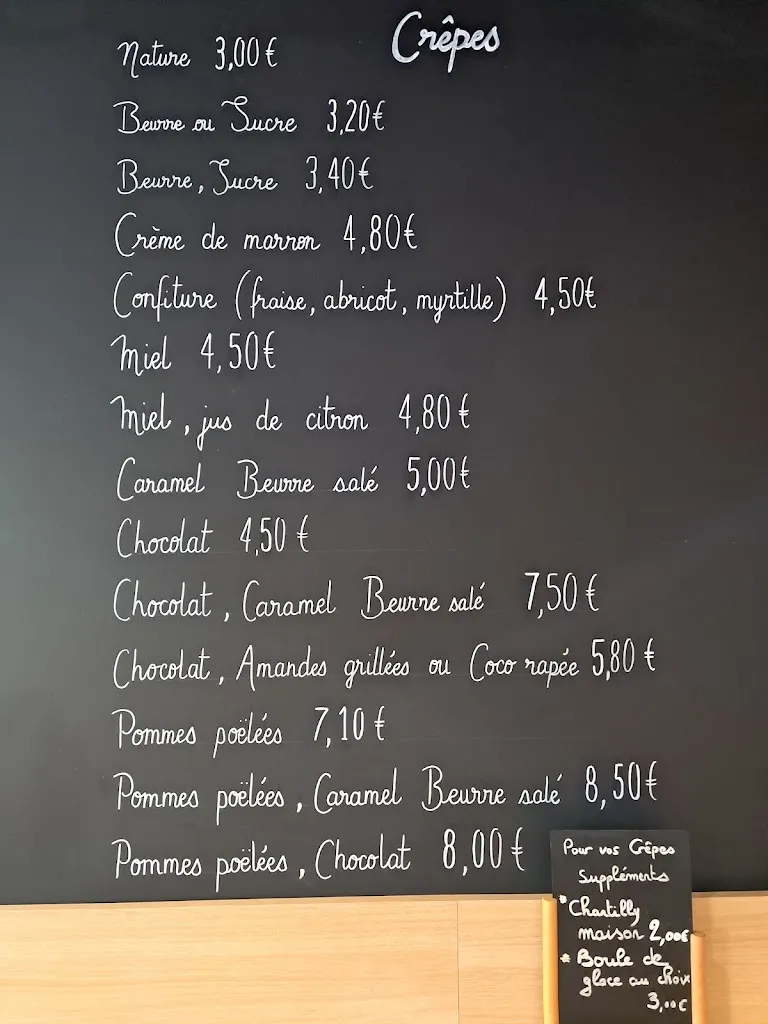 Crêpes
Nature 3,00€
Beurre ou Sucre 3,20€
Beurre, Sucre 3,40€
Crème de marron 4,80€
Confiture (fraise, abricot, myrtille) 4,50€
Miel 4,50€
Miel, jus de citron 4,80€
Caramel Beurre salé 5,00€
Chocolat 4,50€
Chocolat, Caramel Beurre salé 7,50€
Chocolat, Amandes grillées ou Coco rapée 5,80€
Pommes poëlées 7,10€
Pommes poëlées, Caramel Beurre salé 8,50€
Pommes poëlées, Chocolat 8,00€
Pour vos Crêpes
Suppléments
*Chantilly
maison 2,00€
*Boule de
glace au choix
3,00€